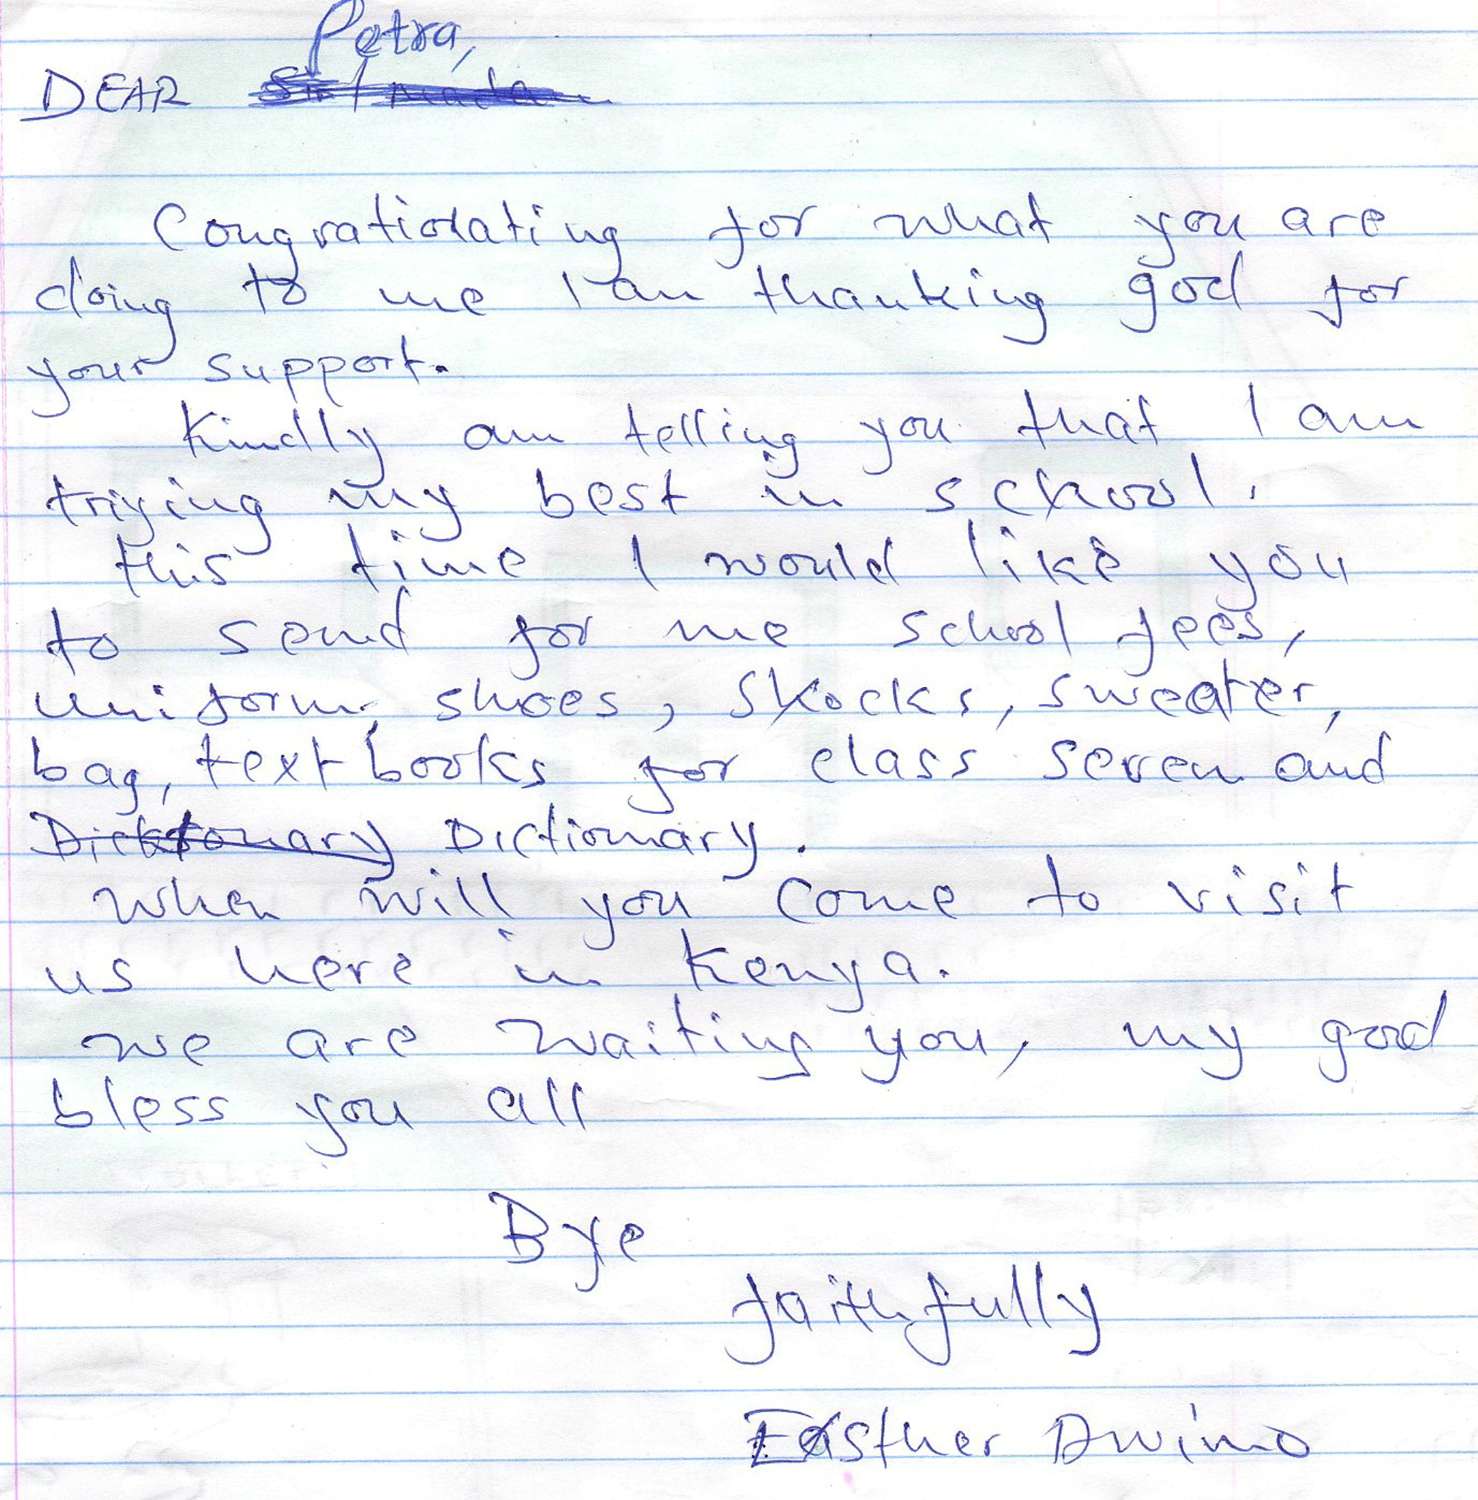 Petra,
DEAR Sir/mada
Congratiolating for what you are
doing to me I am thanking god for
your support.
Kindly am telling you that I am
triying my best in school.
this time I would like you
to send for me school fees,
uniform, shoes, skocks, sweater,
bag, text books for class seven and
Dicktonary Dictionary.
when will you come to visit
us here in Kenya.
we are waiting you, my good
bless you all
Bye
faithfully
Easther Awino